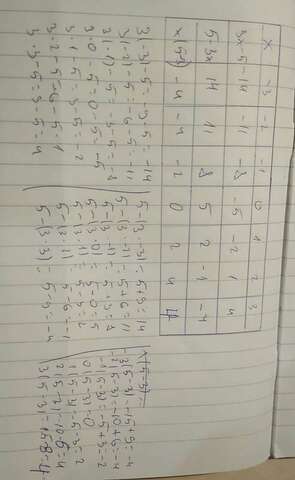 x -3 -2 -1 0 1 2 3
3x-5 -14 -11 -8 -5 -2 1 4
5-3x 14 11 8 5 2 -1 -4
x(5-3) -4 -4 -2 0 2 4 4
3·(-3)-5=-9-5=-14
3·(-2)-5=-6-5=-11
3·(-1)-5=-3-5=-8
3·0-5=0-5=-5
3·1-5=3-5=-2
3·2-5=6-5=1
3·3-5=9-5=4
5-(3·-3)=5+9=14
5-(3·-2)=5+6=11
5-(3·-1)=5+3=8
5-(3·0)=5-0=5
5-(3·1)=5-3=2
5-(3·2)=5-6=-1
5-(3·3)=5-9=-4
x(5-3)
-3(5-3)=-15+9=-4
-2(5-3)=-10+6=-4
-1(5-3)=-5+3=-2
0(5-3)=0
1(5-3)=5-3=2
2(5-3)=10-6=4
3(5-3)=15-8=4